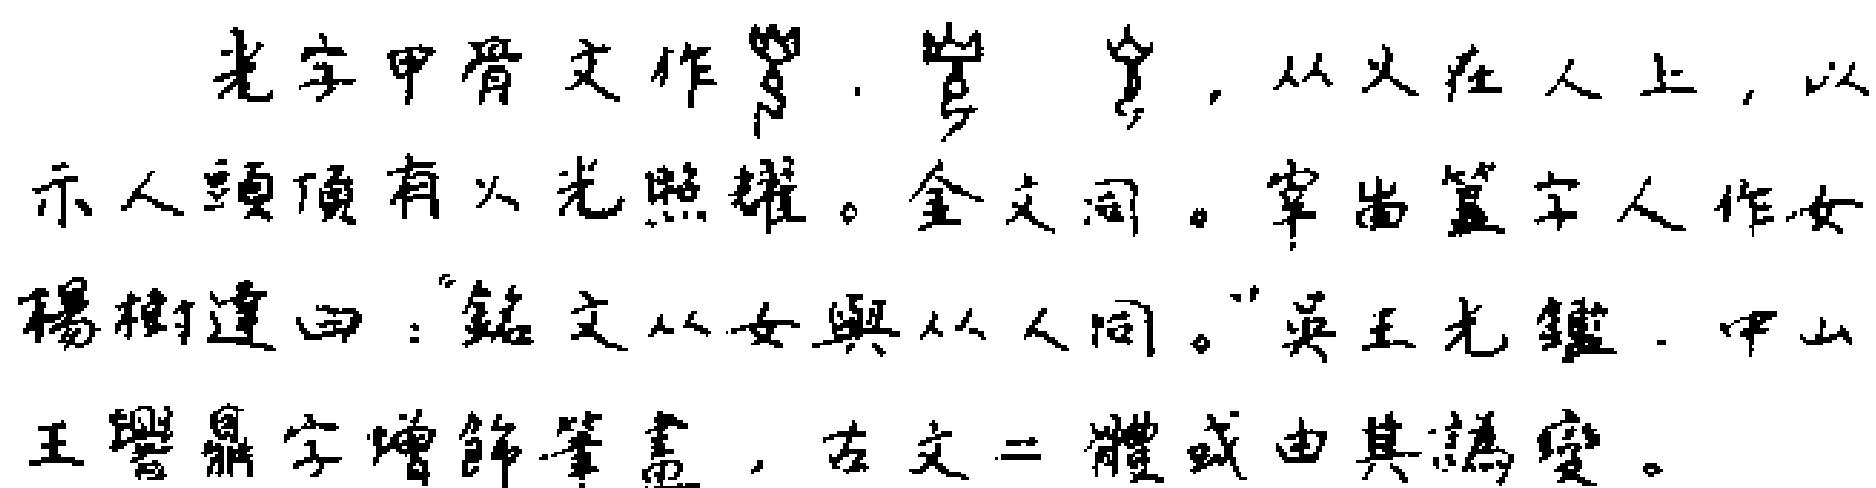 光字甲骨文作、，从火在人上，以
示人頭頂有火光照耀。金文同。宰甾簋字人作女
楊樹達曰：“銘文从女與从人同。”吳王光鑑、中山
王譽鼎字增飾筆畫，古文二體或由其譌變。